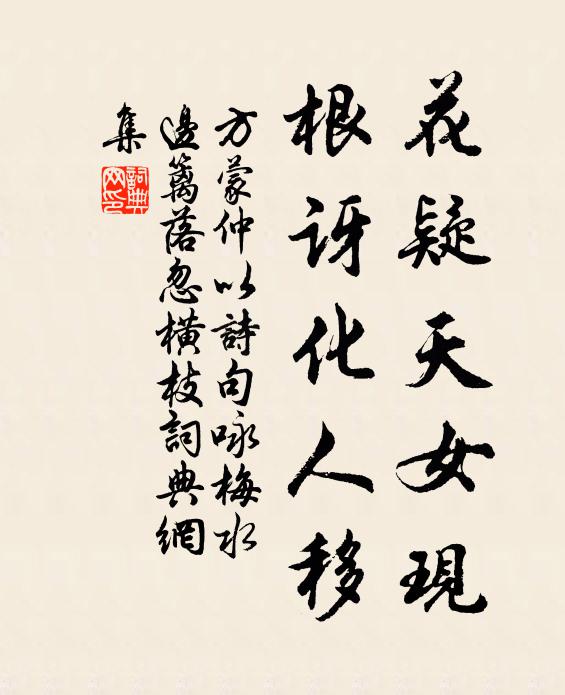 花疑天女現
根訝化人移
方蒙仲以詩句咏梅水
邊篱落忽橫枝詞典網
集
詞典
网印